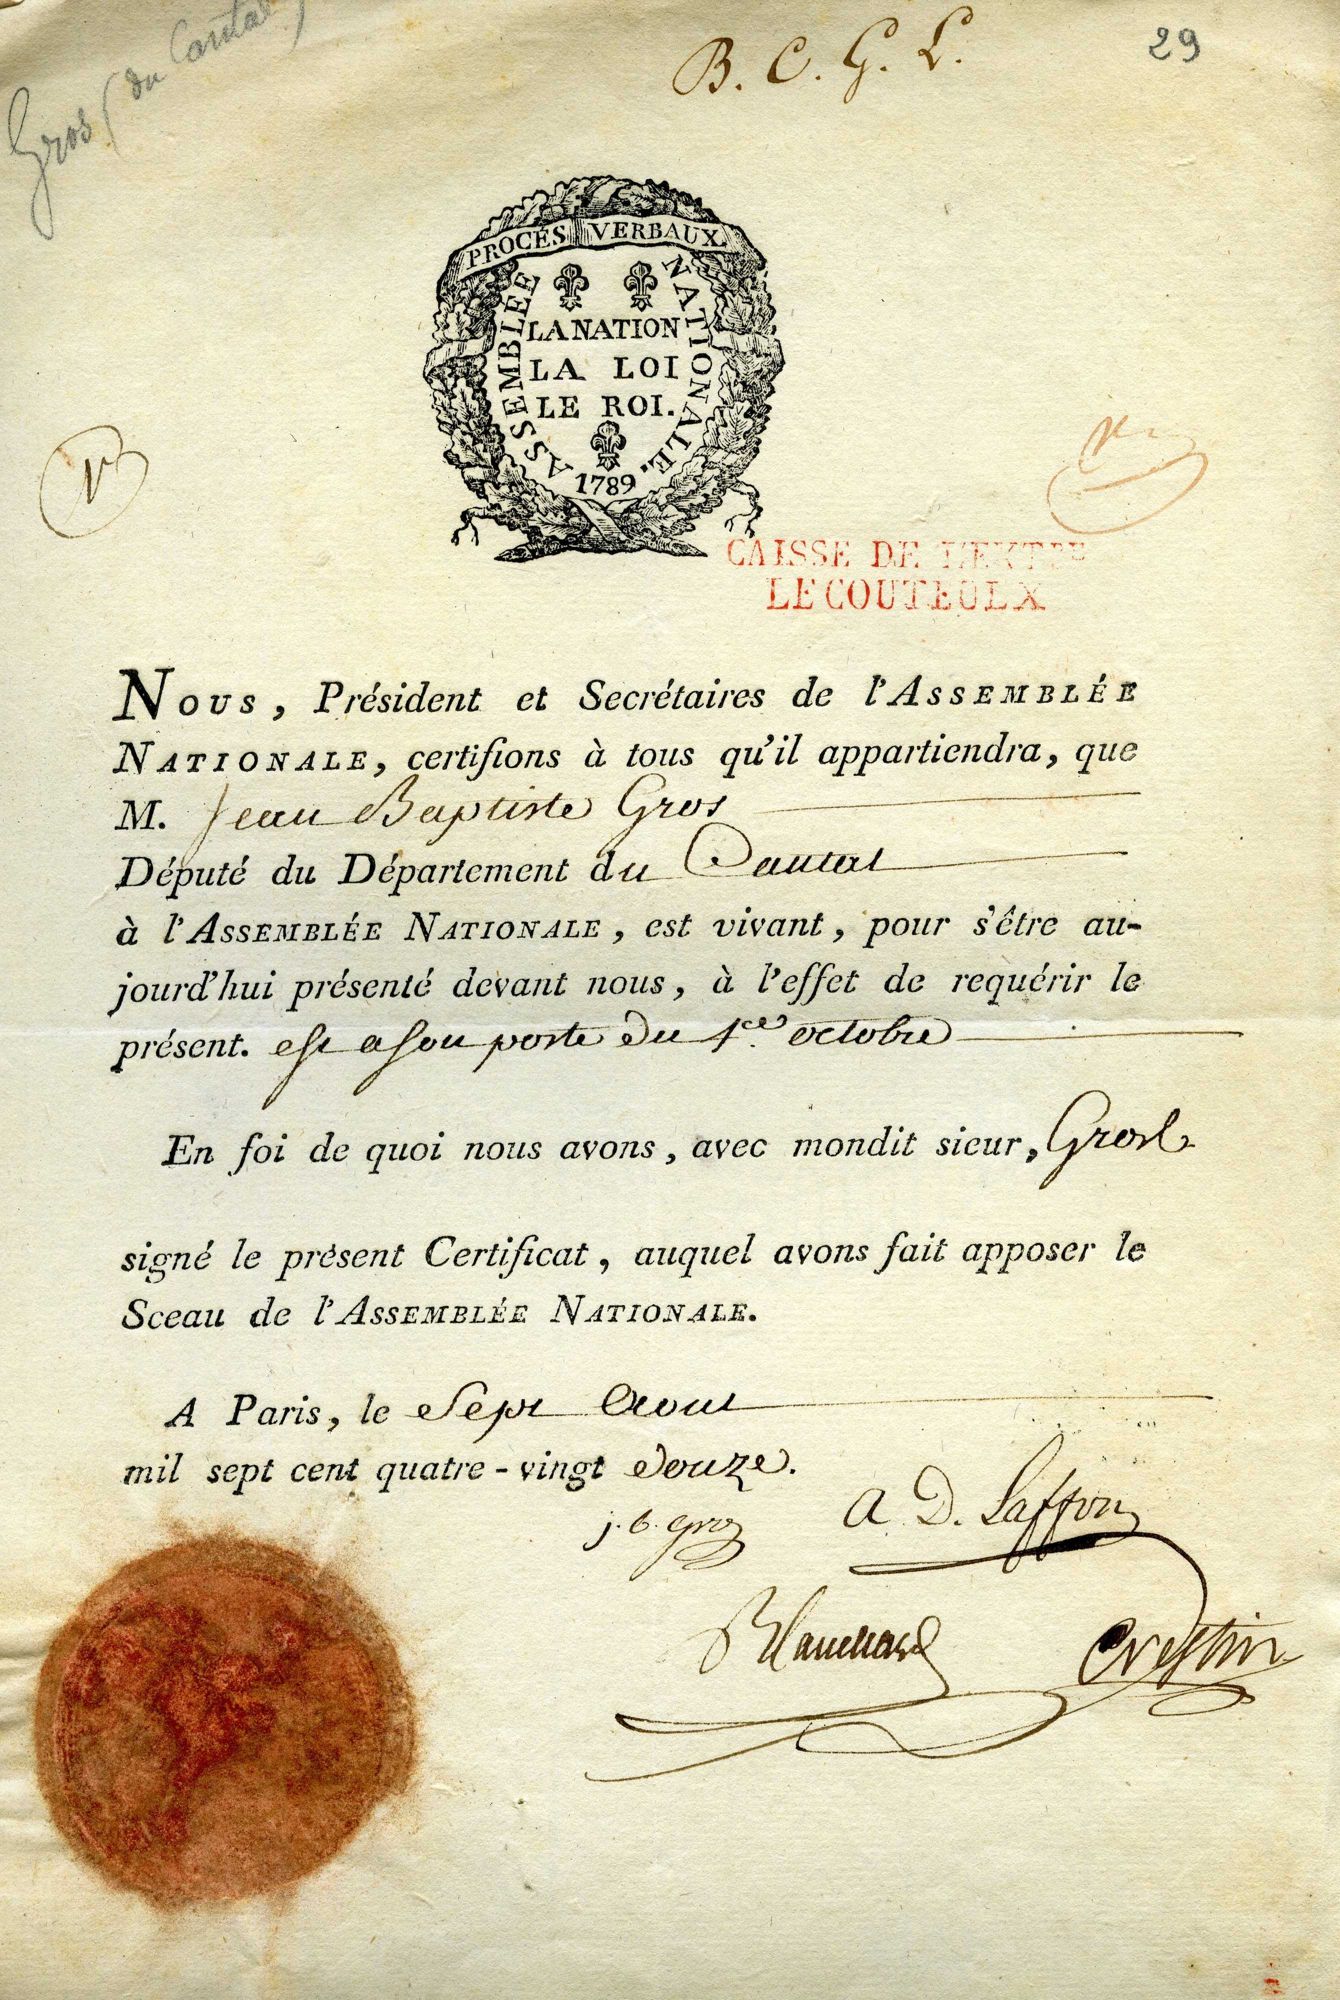 Gros (du Cantal)
B. C. G. L.
29
PROCÈS VERBAUX
ASSEMBLEE NATIONALE.
LA NATION
LA LOI
LE ROI.
1789
V
CAISSE DE L'EXTRE
LE COUTEULX
NOUS, Président et Secrétaires de l'ASSEMBLÉE
NATIONALE, certifions à tous qu'il appartiendra, que
M. Jean Baptiste Gros
Député du Département du Cantal
à l'ASSEMBLÉE NATIONALE, est vivant, pour s'être au-
jourd'hui présenté devant nous, à l'effet de requérir le
présent. est a son poste du 1er octobre
En foi de quoi nous avons, avec mondit sieur, Gros
signé le présent Certificat, auquel avons fait apposer le
Sceau de l'ASSEMBLÉE NATIONALE.
A Paris, le Sept Aout
mil sept cent quatre-vingt douze.
j. b. gros
A D. Laffon
Blanchard
Crestin